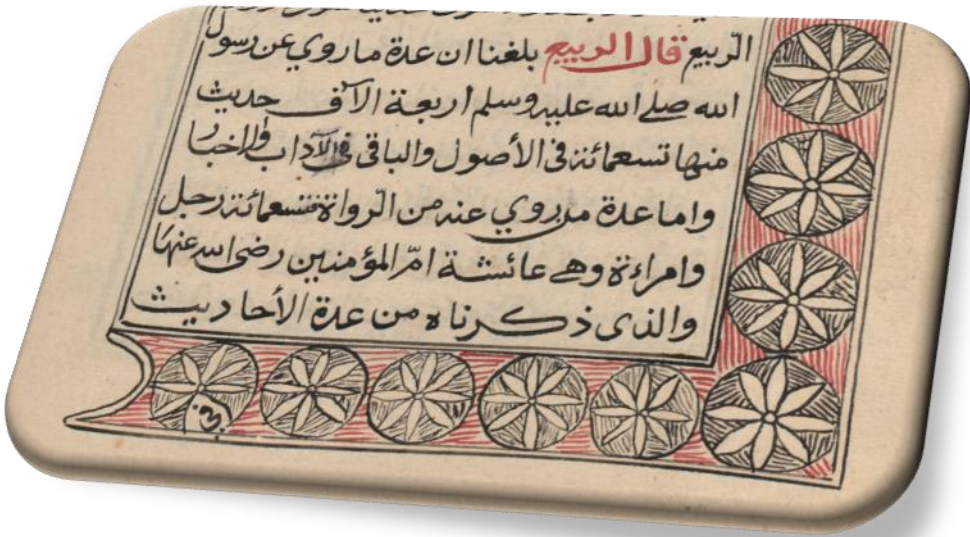 الربيع قال الربيع بلغنا ان عدة ما روي عن رسول
الله صلے الله عليه وسلم اربعة الآف حديث
منها تسعمائة في الأصول والباقي في الآداب والاخبار
واما عدة من روي عنه من الرواة فتسعمائة رجل
وامراءة وهے عائشة امّ المؤمنين رضى الله عنها
والذى ذكرناه من عدة الأحاديث